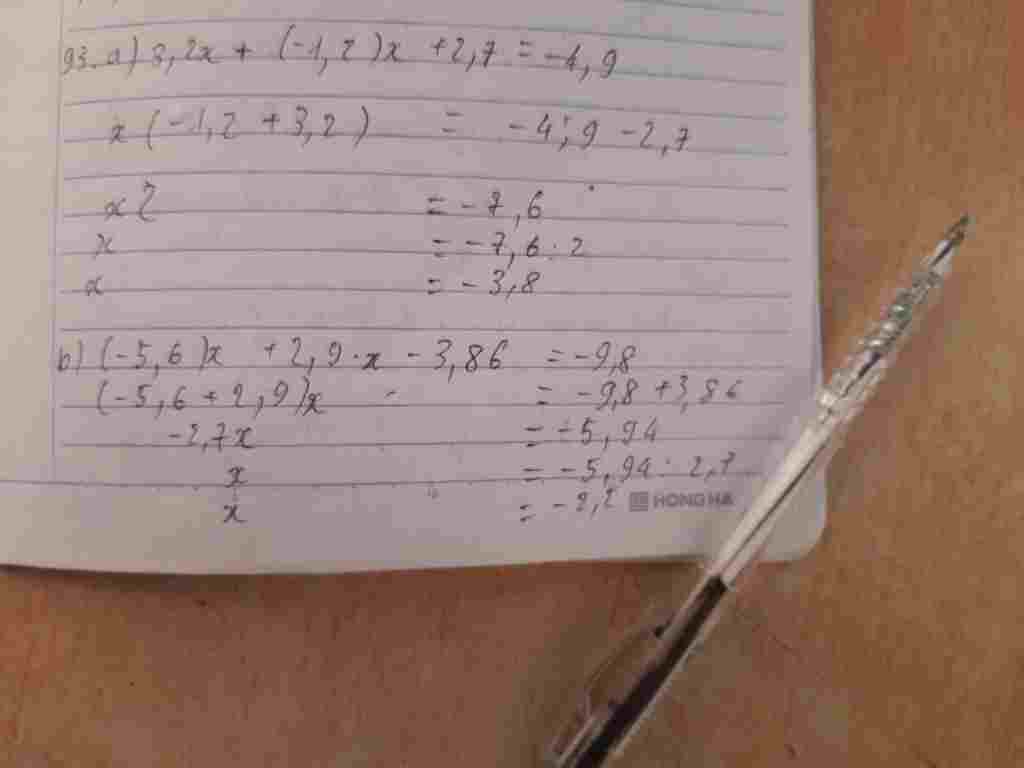 93. a) 3,2x + (-1,2)x +2,7 = -4,9
x(-1,2 + 3,2) = -4,9 - 2,7
x2 = -7,6
x = -7,6 : 2
x = -3,8
b) (-5,6)x + 2,9 · x - 3,86 = -9,8
(-5,6 + 2,9)x = -9,8 + 3,86
-2,7x = -5,94
x = -5,94 : 2,7
x = -2,2
HONG HA